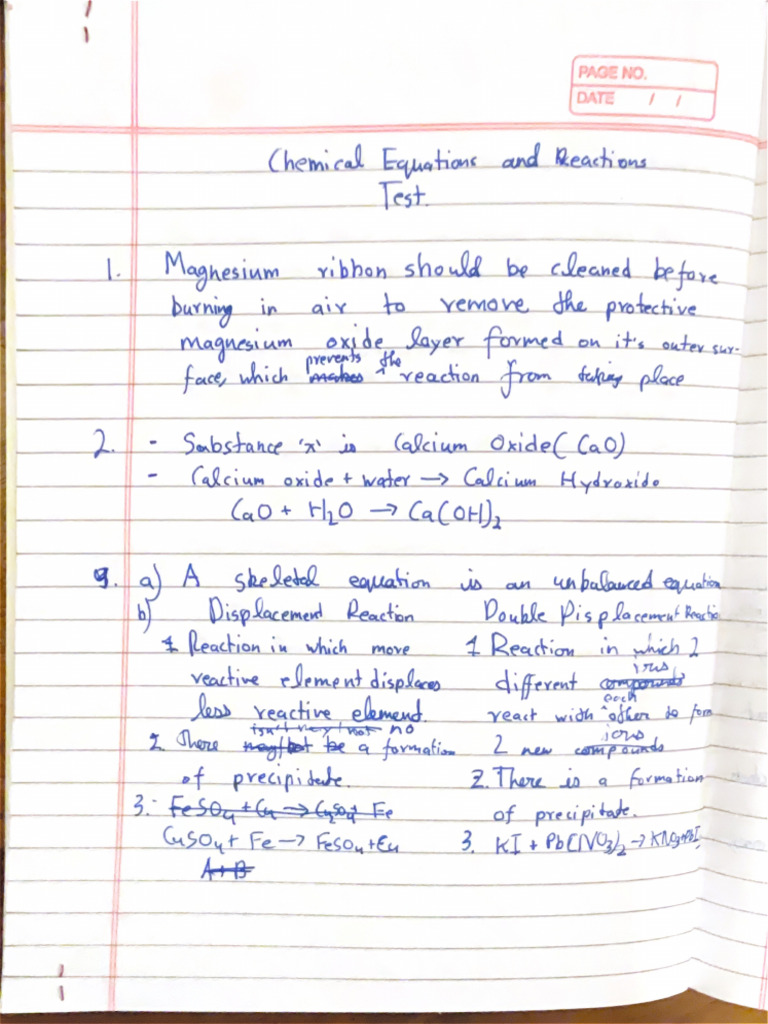 PAGE NO.
DATE / /
Chemical Equations and Reactions
Test.
1. Magnesium ribbon should be cleaned before
burning in air to remove the protective
magnesium oxide layer formed on it's outer sur-
face, which prevents the reaction from taking place
2. - Substance 'x' is Calcium Oxide (CaO)
- Calcium oxide + water → Calcium Hydroxide
CaO + H₂O → Ca(OH)₂
a) A skeletal equation is an unbalanced equation
b) Displacement Reaction Double Displacement Reactio
1. Reaction in which more 1 Reaction in which 2
reactive element displaces different ions
less reactive element. react with each other to form
2. There no a formation 2 new ions
of precipitate. 2. There is a formation
3. FeSO₄ + Cu → Fe of precipitate.
CuSO₄ + Fe → FeSO₄ + Cu 3. KI + Pb(NO₃)₂ → KNO₃ + PbI
A + B